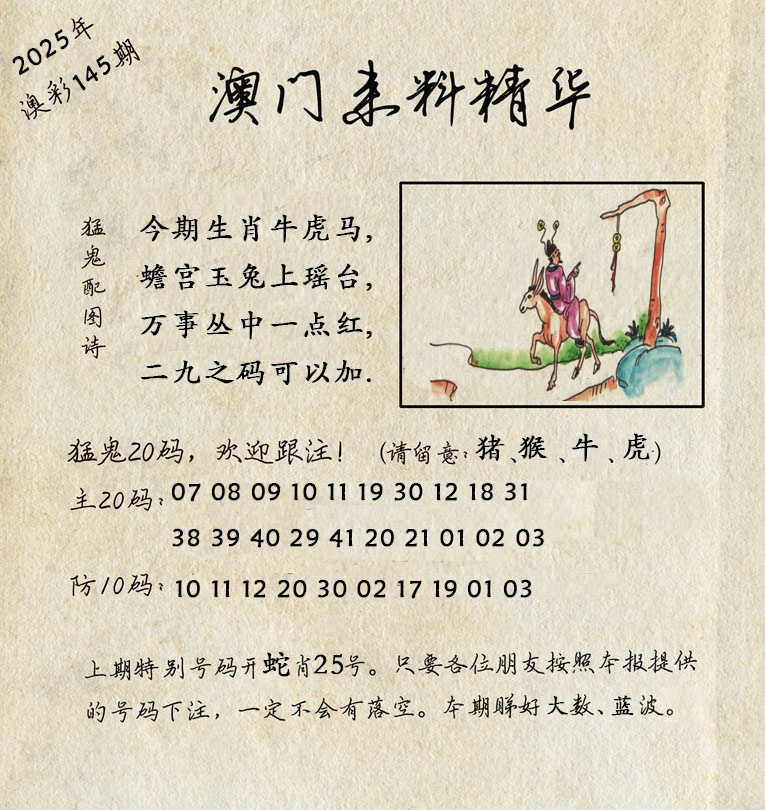 2025年
澳彩145期
澳门来料精华
猛鬼配图诗
今期生肖牛虎马,
蟾宫玉兔上瑶台,
万事丛中一点红,
二九之码可以加.
猛鬼20码，欢迎跟注！（请留意：猪、猴、牛、虎）
主20码：07 08 09 10 11 19 30 12 18 31
38 39 40 29 41 20 21 01 02 03
防10码：10 11 12 20 30 02 17 19 01 03
上期特别号码开蛇肖25号。只要各位朋友按照本报提供
的号码下注，一定不会有落空。本期睇好大数、蓝波。